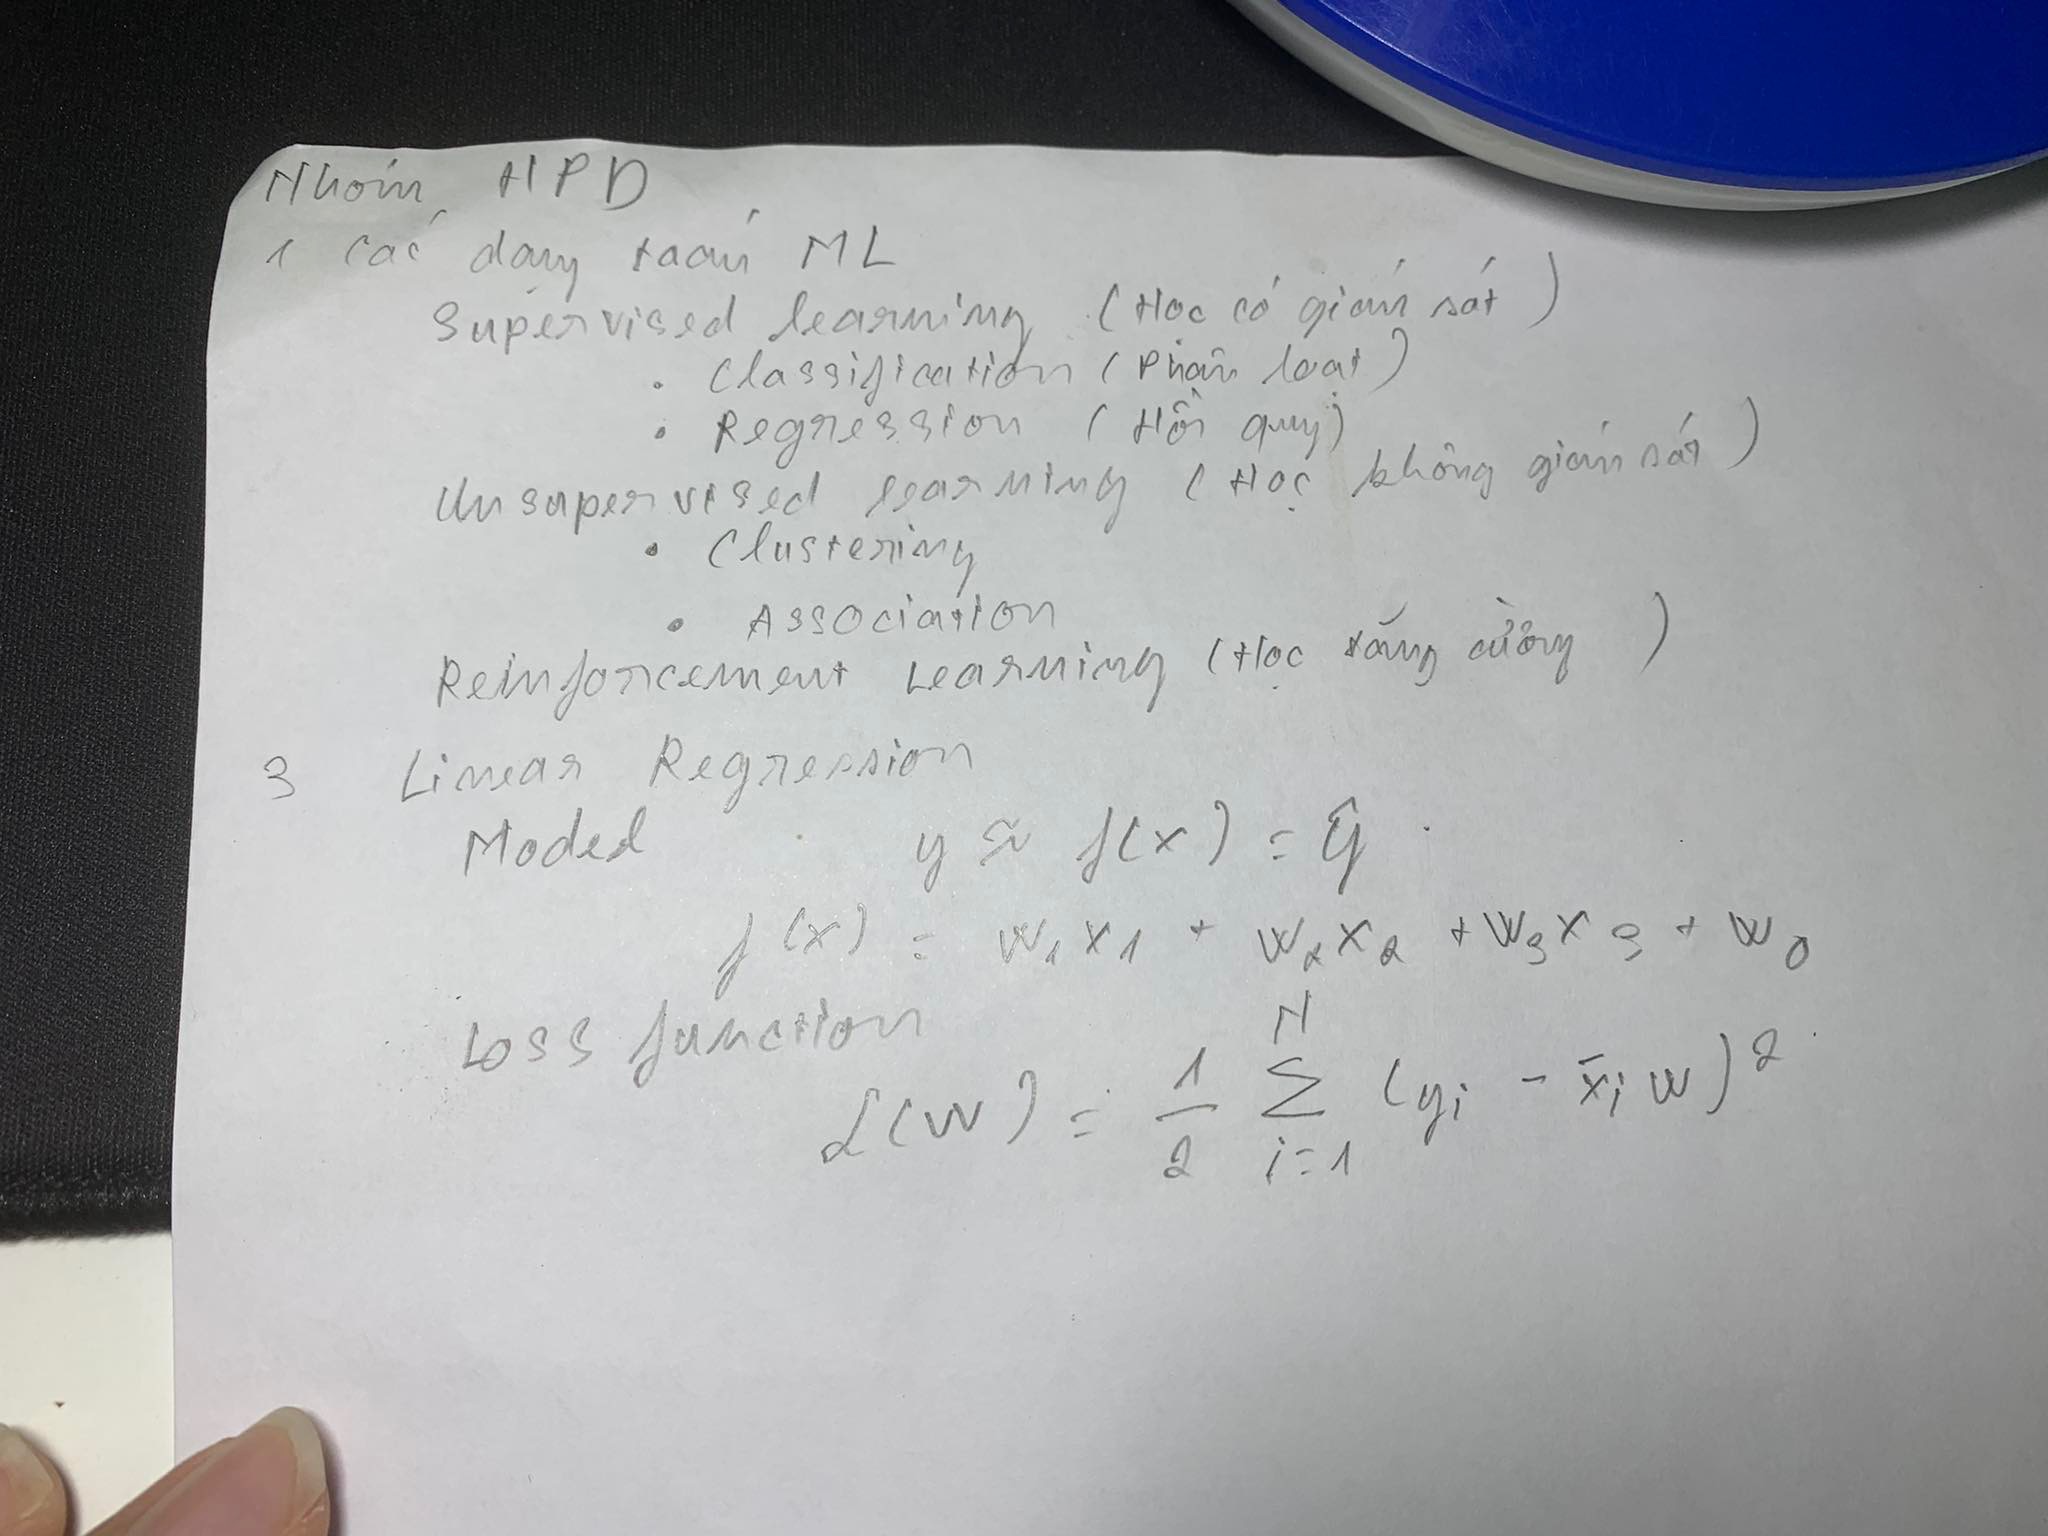 Nhóm HPD
1 Các dạng toán ML
Supervised learning (Học có giám sát)
• Classification (Phân loạt)
• Regression (Hồi quy)
Unsupervised learning (Học không giám sát)
• Clustering
• Association
Reinforcement Learning (Học tăng cường)
3 Linear Regression
Moded y ≈ f(x) = ŷ
f(x) = w₁x₁ + w₂x₂ + w₃x₃ + w₀
Loss function
L(w) = 1/2 ∑_{i=1}^{N} (yᵢ - x̄ᵢw)²